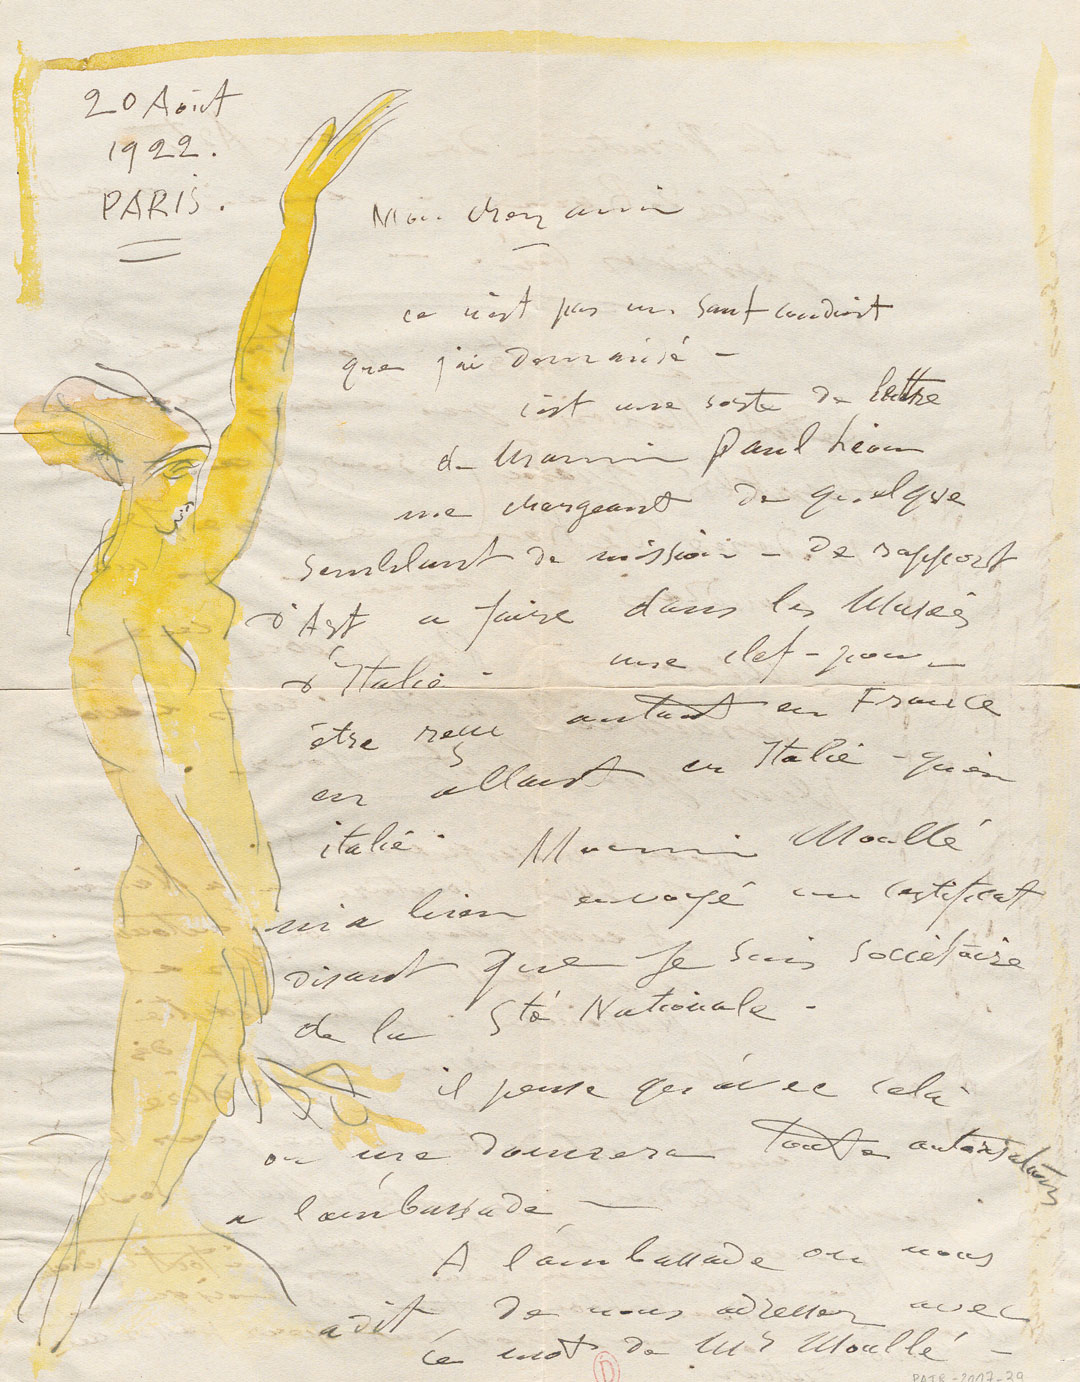 20 Août
1922.
PARIS.
Mon cher ami
ce n'est pas un sauf conduit
que j'ai demandé -
c'est une sorte de lettre
de Paul Léon
me chargeant de quelque
semblant de mission - de rapport
d'Art a faire dans les Musées
d'Italie - une clef - pour
être reçu autant en France
en allant en Italie - qu'en
italie Moullé
m'a bien envoyé un certificat
disant que je suis sociétaire
de la Sté Nationale -
il pense qu'avec celà
on me donnera toute autorisations
a l'ambassade -
A l'ambassade on nous
a dit de nous adresser avec
ce mot de Mr Moullé -
PATR-2007-29